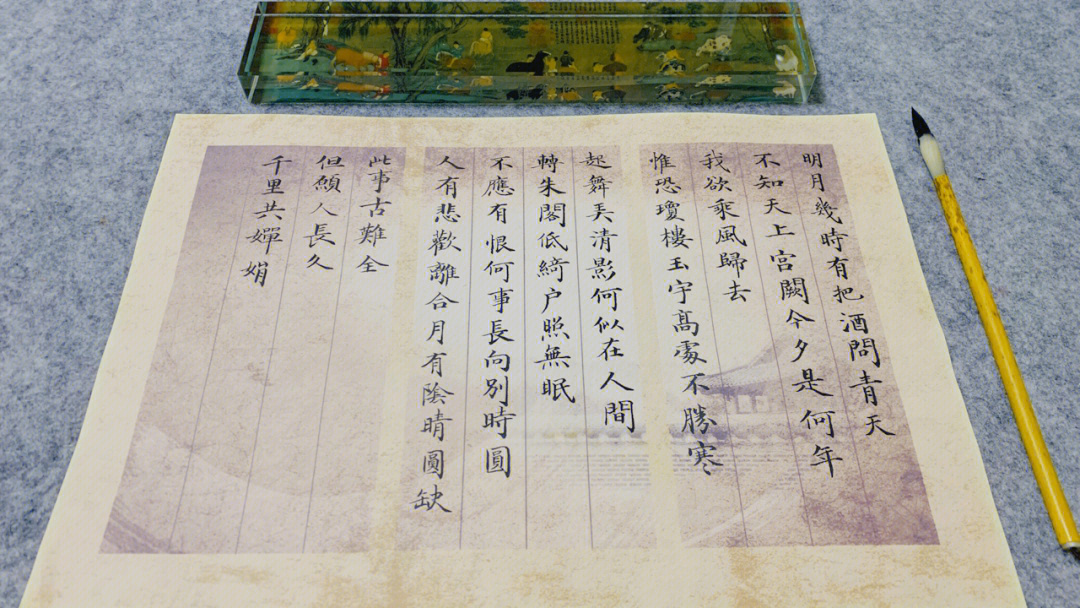 明月幾時有把酒問青天
不知天上宮闕今夕是何年
我欲乘風歸去
惟恐瓊樓玉宇髙處不勝寒
起舞弄清影何似在人間
轉朱閣低綺户照無眠
不應有恨何事長向别時圓
人有悲歡離合月有陰晴圓缺
此事古難全
但願人長久
千里共嬋娟